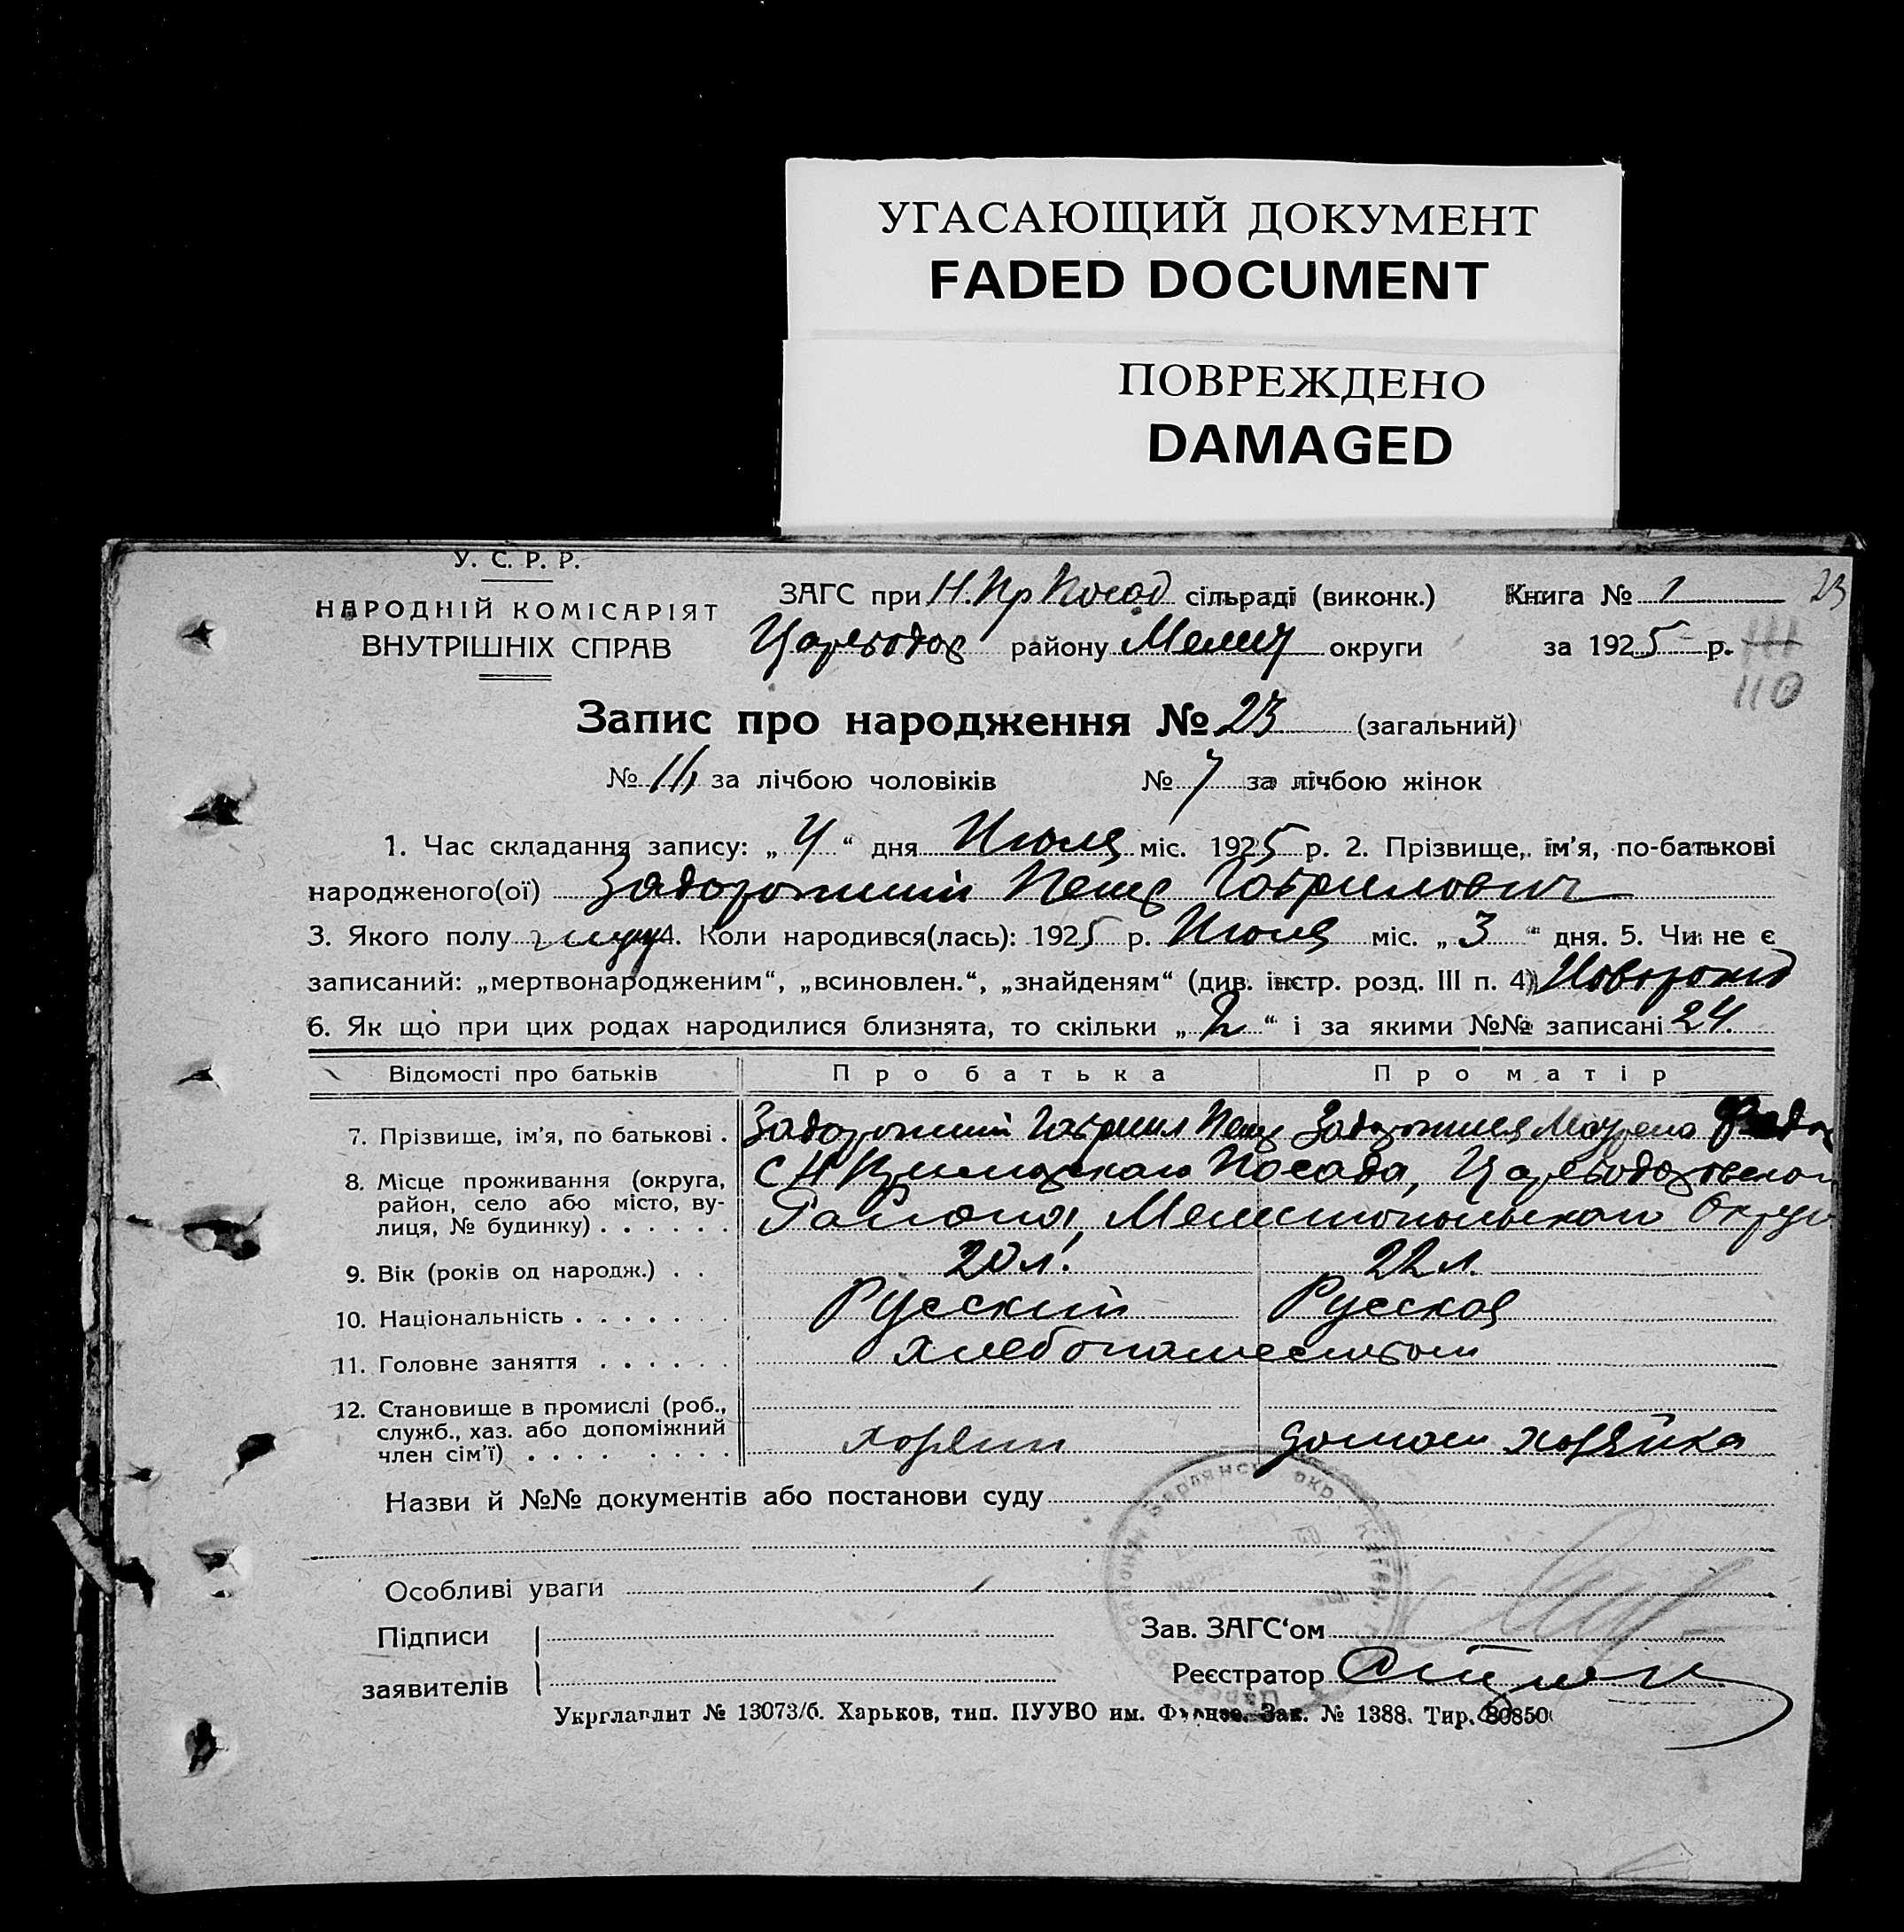 УГАСАЮЩИЙ ДОКУМЕНТ
FADED DOCUMENT
ПОВРЕЖДЕНО
DAMAGED
У. С. Р. Р.
НАРОДНІЙ КОМІСАРІЯТ
ВНУТРІШНІХ СПРАВ
ЗАГС при Н. Пр Посад сільраді (виконк.)
Цареводар району Мелит округи
Книга № 1
23
за 1925 р.
110
Запис про народження № 23 (загальний)
№ 16 за лічбою чоловіків № 7 за лічбою жінок
1. Час складання запису: „ 4 “ дня Июля міс. 1925 р. 2. Прізвище, ім’я, по-батькові
народженого(ої) Задорожний Петр Гаврилович
3. Якого полу муж 4. Коли народився(лась): 1925 р. Июля міс. „ 3 “ дня. 5. Чи не є
записаний: „мертвонародженим“, „всиновлен.“, „знайденям“ (див. інстр. розд. III п. 4) Новорожд
6. Як що при цих родах народилися близнята, то скільки „ 2 “ і за якими №№ записані 24.
Відомості про батьків Про батька Про матір
7. Прізвище, ім’я, по батькові . Задорожний Гавриил Петр Задорожная Матрена
8. Місце проживання (округа, район, село або місто, вулиця, № будинку) . . . . . . С Н Посада,
Района, Мелитопольского Округа
9. Вік (років од народж.) . . 20 л. 22 л.
10. Національність . . . . . . . Русский Русская
11. Головне заняття . . . . . . хлебопашеством
12. Становище в промислі (роб., служб., хаз. або допоміжний член сім’ї) . . . . . . . . хозяин домаш хозяйка
Назви й №№ документів або постанови суду
Особливі уваги
Підписи заявителів
Зав. ЗАГС‘ом
Реєстратор
Укрглавлит № 13073/б. Харьков, тип. ПУУВО им. Фрунзе. Зак. № 1388. Тир. 80850